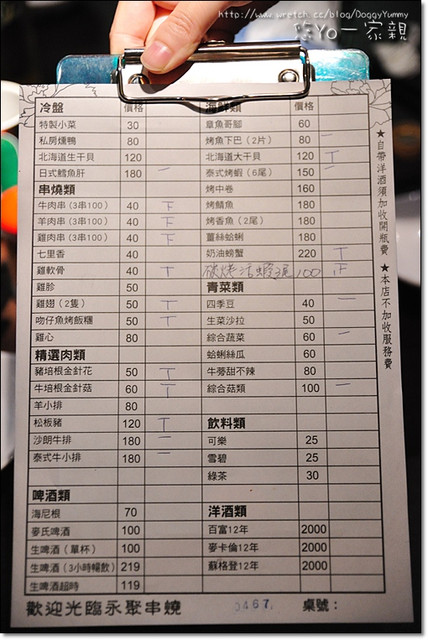 http://www.wretch.cc/blog/DoggyYummy
Yo一家親
冷盤 價格
特製小菜 30
私房燻鴨 80
北海道生干貝 120
日式鱈魚肝 180 一
串燒類
牛肉串 (3串100) 40 下
羊肉串 (3串100) 40 下
雞肉串 (3串100) 40 下
七里香 40 丅
雞軟骨 40 丅
雞胗 50
雞翅 (2隻) 50 丅
吻仔魚烤飯糰 50 丅
雞心 80
精選肉類
豬培根金針花 50 丅
牛培根金針菇 60 丅
羊小排 80
松板豬 120 丅
沙朗牛排 180 一
泰式牛小排 180 一
啤酒類
海尼根 70
麥氏啤酒 100
生啤酒 (單杯) 100
生啤酒 (3小時暢飲) 219
生啤酒超時 119
海鮮類 價格
章魚哥腳 60
烤魚下巴 (2片) 80 一
北海道大干貝 120 丅
泰式烤蝦 (6尾) 150 一
烤中卷 160
烤鯖魚 180
烤香魚 (2尾) 180
薑絲蛤蜊 180
奶油螃蟹 220 丅
碳烤活蝦3尾 100 下
青菜類
四季豆 40 一
生菜沙拉 50
綜合蔬菜 60 一
蛤蜊絲瓜 60
牛蒡甜不辣 80
綜合菇類 100 一
飲料類
可樂 25
雪碧 25
綠茶 30
洋酒類
百富12年 2000
麥卡倫12年 2000
蘇格登12年 2000
★自帶洋酒須加收開瓶費 ★本店不加收服務費
歡迎光臨永聚串燒 0467 桌號：